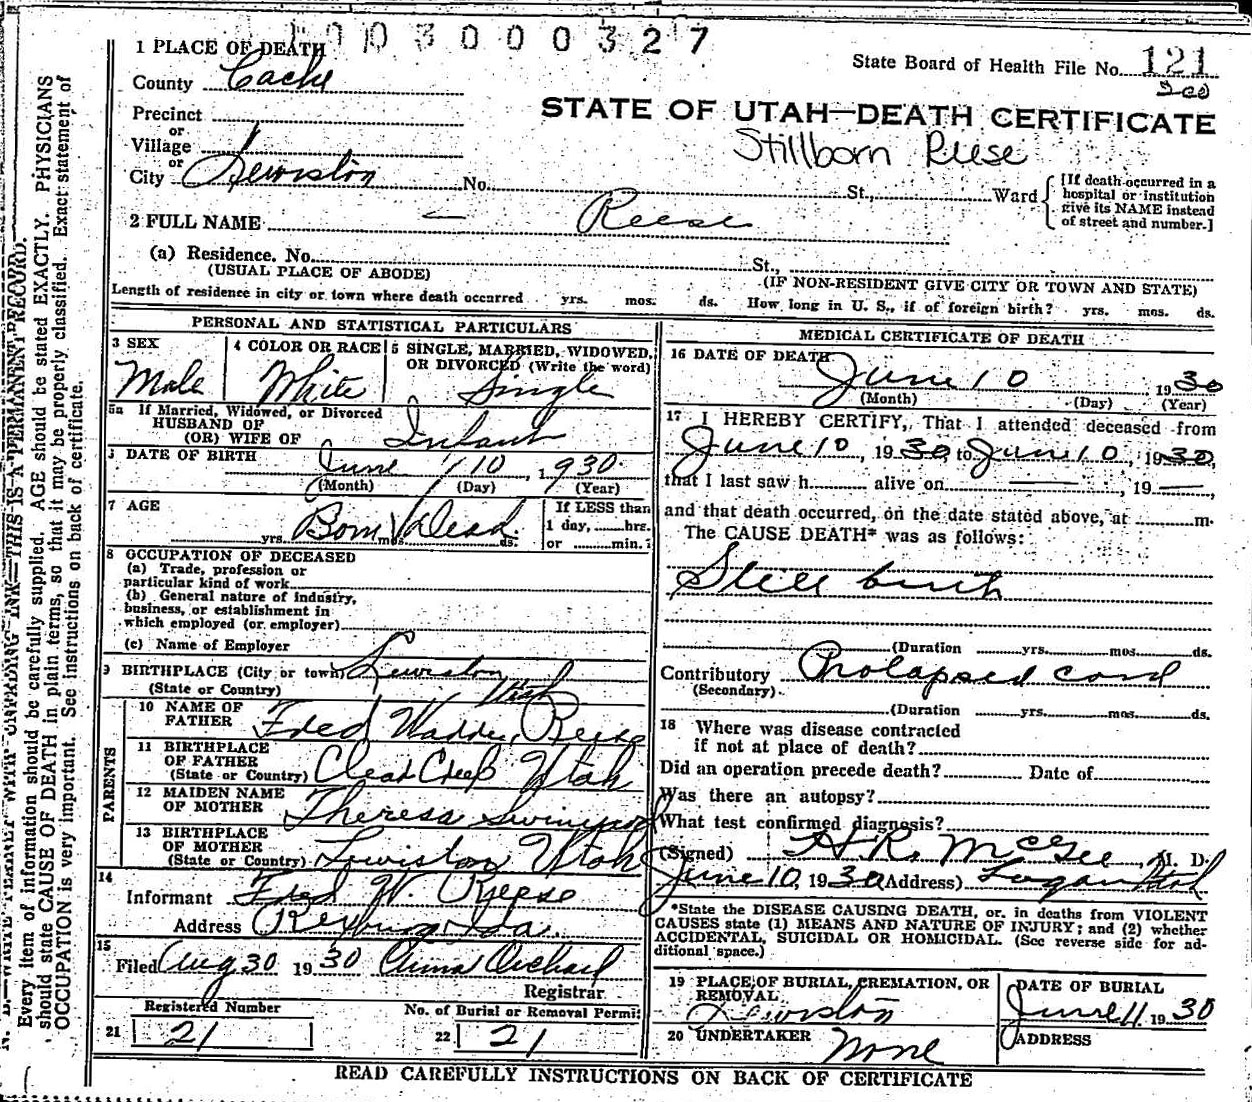 1003000327
1 PLACE OF DEATH
State Board of Health File No. 121
County Cache
300
Precinct
STATE OF UTAH—DEATH CERTIFICATE
or
Village
Stillborn Reese
or
City Lewiston No. St., Ward [If death occurred in a hospital or institution give its NAME instead of street and number.]
2 FULL NAME — Reese
(a) Residence. No. St.,
(USUAL PLACE OF ABODE) (IF NON-RESIDENT GIVE CITY OR TOWN AND STATE)
Length of residence in city or town where death occurred yrs. mos. ds. How long in U. S., if of foreign birth? yrs. mos. ds.
PERSONAL AND STATISTICAL PARTICULARS
3 SEX
Male
4 COLOR OR RACE
White
5 SINGLE, MARRIED, WIDOWED,
OR DIVORCED (Write the word)
Single
5a If Married, Widowed, or Divorced
HUSBAND OF
(OR) WIFE OF Infant
DATE OF BIRTH
June 10, 1930
(Month) (Day) (Year)
7 AGE
Born Dead
yrs. mos. ds.
If LESS than
1 day, hrs.
or min.?
8 OCCUPATION OF DECEASED
(a) Trade, profession or
particular kind of work
(b) General nature of industry,
business, or establishment in
which employed (or employer)
(c) Name of Employer
9 BIRTHPLACE (City or town) Lewiston
(State or Country) Utah
PARENTS
10 NAME OF
FATHER Fred Reese
11 BIRTHPLACE
OF FATHER
(State or Country) Clear Creek Utah
12 MAIDEN NAME
OF MOTHER Theresa
13 BIRTHPLACE
OF MOTHER
(State or Country) Lewiston Utah
14
Informant Fred W. Reese
Address Rexburg Ida.
15
Filed Aug 30 1930
Registrar
Registered Number
21 21
No. of Burial or Removal Permit
22 21
MEDICAL CERTIFICATE OF DEATH
16 DATE OF DEATH
June 10 1930
(Month) (Day) (Year)
17 I HEREBY CERTIFY, That I attended deceased from
June 10, 1930, to June 10, 1930,
that I last saw h alive on —, 19—,
and that death occurred, on the date stated above, at m.
The CAUSE DEATH* was as follows:
Still birth
(Duration yrs. mos. ds.
Contributory Prolapsed cord
(Secondary)
(Duration yrs. mos. ds.
18 Where was disease contracted
if not at place of death?
Did an operation precede death? Date of
Was there an autopsy?
What test confirmed diagnosis?
(Signed) H.R. McGee, M. D.
June 10, 1930 (Address) Logan Utah
*State the DISEASE CAUSING DEATH, or in deaths from VIOLENT
CAUSES state (1) MEANS AND NATURE OF INJURY; and (2) whether
ACCIDENTAL, SUICIDAL OR HOMICIDAL. (See reverse side for ad-
ditional space.)
19 PLACE OF BURIAL, CREMATION, OR
REMOVAL
Lewiston
DATE OF BURIAL
June 11 1930
20 UNDERTAKER
None
ADDRESS
READ CAREFULLY INSTRUCTIONS ON BACK OF CERTIFICATE
N. B.—WRITE PLAINLY WITH UNFADING INK—THIS IS A PERMANENT RECORD.
Every item of information should be carefully supplied. AGE should be stated EXACTLY. PHYSICIANS
should state CAUSE OF DEATH in plain terms, so that it may be properly classified. Exact statement of
OCCUPATION is very important. See instructions on back of certificate.